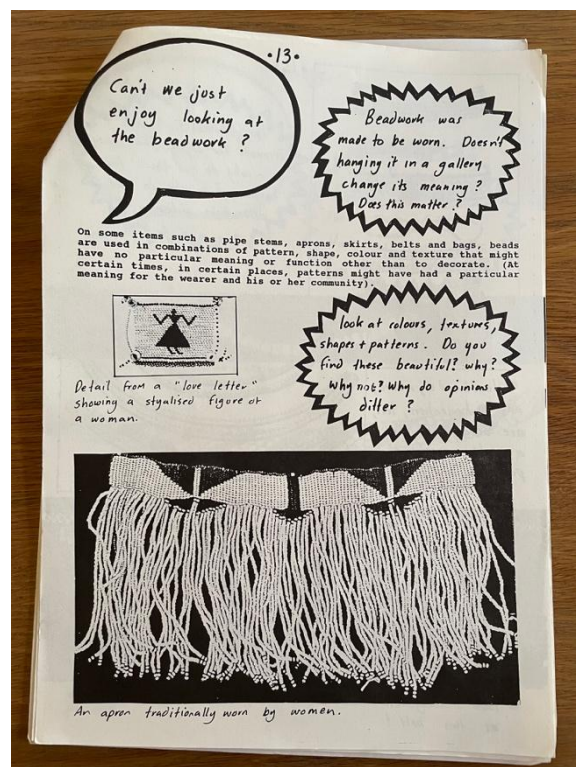 ·13·
Can't we just
enjoy looking at
the beadwork ?
Beadwork was
made to be worn. Doesn't
hanging it in a gallery
change its meaning ?
Does this matter ?
On some items such as pipe stems, aprons, skirts, belts and bags, beads
are used in combinations of pattern, shape, colour and texture that might
have no particular meaning or function other than to decorate. (At
certain times, in certain places, patterns might have had a particular
meaning for the wearer and his or her community).
look at colours, textures,
shapes + patterns. Do you
find these beautiful? why?
Why not? Why do opinions
differ ?
Detail from a "love letter"
showing a styalised figure of
a woman.
An apron traditionally worn by women.